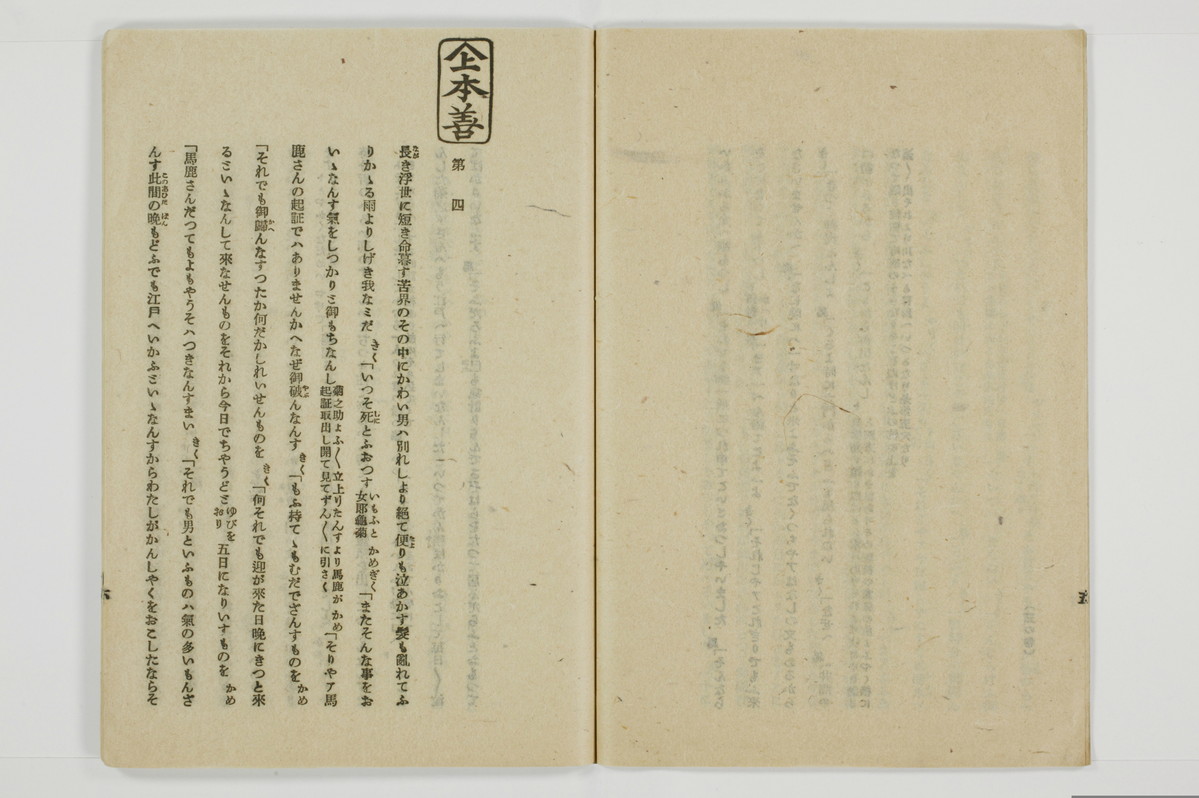 五
仝本善
第四
長き浮世に短き命暮す苦界のその中にかわい男ハ別れしより絶て便りも泣あかす髪も亂れてふ
りかゝる雨よりしげき我なミだ きく「いつそ死とふおつす いもふと女郎龜菊 かめぎく「またそんな事をお
いゝなんす氣をしつかりミ御もちなんし 菊之助よふ〳〵立上りたんすより馬鹿が起証取出し開て見てずん〳〵に引さく かめ「そりやア馬
鹿さんの起証でハありませんかへなぜ御破んなんす きく「もふ持てゝもむだでさんすものを かめ
「それでも御歸んなすつたか何だかしれいせんものを きく「何それでも迎が來た日晩にきつと來
るミいゝなんして來なせんものをそれから今日でちやうどミ ゆびをおり 五日になりいすものを かめ
「馬鹿さんだつてもよもやうそハつきなんすまい きく「それでも男といふものハ氣の多いもんさ
んす此間の晩もどふでも江戸へいかふミいゝなんすからわたしがかんしやくをおこしたならそ
六